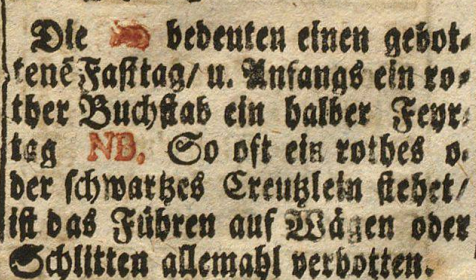 Die bedeuten einen gebot⸗
tenẽ Fasttag/ u. Anfangs ein ro⸗
ther Buchstab ein halber Feyr⸗
tag NB. So oft ein rothes o⸗
der schwartzes Creutzlein stehet/
ist das Führen auf Wägen oder
Schlitten allemahl verbotten.